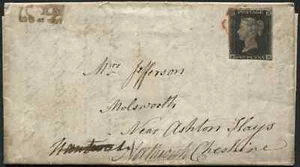 POSTAGE
ONE PENNY
Mrs Jefferson
Molsworth
Near Ashton Hays
Northwich Cheshire